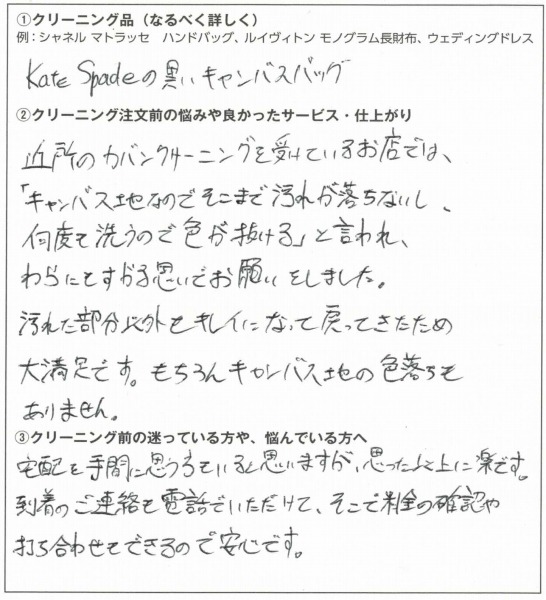 ①クリーニング品（なるべく詳しく）
例：シャネル マトラッセ　ハンドバッグ、ルイヴィトン モノグラム長財布、ウェディングドレス
Kate Spadeの黒いキャンバスバッグ
②クリーニング注文前の悩みや良かったサービス・仕上がり
近所のカバンクリーニングを受けているお店では、
「キャンバス地なのでそこまで汚れが落ちないし、
何度も洗うので色が抜ける」と言われ、
わらにもすがる思いでお願いをしました。
汚れた部分以外もキレイになって戻ってきたため
大満足です。もちろんキャンバス地の色落ちも
ありません。
③クリーニング前の迷っている方や、悩んでいる方へ
宅配を手間に思う方もいると思いますが、思った以上に楽です。
到着のご連絡も電話でいただけて、そこで料金の確認や
打ち合わせもできるので安心です。